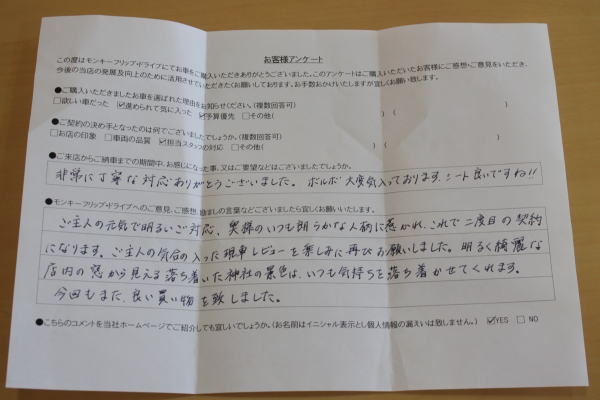 お客様アンケート
この度はモンキーフリップ・ドライブにてお車をご購入いただきありがとうございました。このアンケートはご購入いただいたお客様にご感想・ご意見をいただき、
今後の当店の発展及び向上のために活用させていただきたくお願いしております。お手数おかけいたしますが宜しくお願い致します。
●ご購入いただきましたお車を選ばれた理由をお知らせください。(複数回答可)
□欲しい車だった ☑進められて気に入った ☑予算優先 □その他( ) ( )
●ご契約の決め手となったのは何でございましたでしょうか。(複数回答可)
□お店の印象 □車両の品質 ☑担当スタッフの対応 □その他( ) ( )
●ご来店からご納車までの期間中、お感じになった事、又はご要望などはございましたでしょうか。
非常に丁寧な対応ありがとうございました。ボルボ大変気入っております、シート良いですね!!
●モンキーフリップ・ドライブへのご意見、ご感想、励ましの言葉などございましたら宜しくお願いいたします。
ご主人の元気で明るいご対応、奥様のいつも朗らかな人柄に惹かれ、これで二度目の契約
になります。ご主人の気合の入った現車レビューを楽しみに再びお願いしました。明るく綺麗な
店内の窓から見える落ち着いた神社の景色は、いつも気持ちを落ち着かせてくれます。
今回もまた、良い買い物を致しました。
●こちらのコメントを当社ホームページでご紹介しても宜しいでしょうか。(お名前はイニシャル表示とし個人情報の漏えいは致しません。) ☑YES □ NO